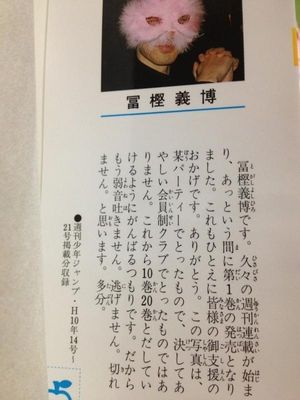 冨樫義博
冨樫義博です。久々の週刊連載が始ま
り、あっという間に第1巻の発売となり
ました。これもひとえに皆様の御支援の
おかげです。ありがとう。この写真は、
某パーティーでとったもので、決してあ
やしい会員制クラブでとったものではあ
りません。これから10巻20巻とだしてい
けるようにがんばるつもりです。だから
もう弱音吐きません。逃げません。切れ
ません。と思います。多分。
●週刊少年ジャンプ・H10年14号〜
21号掲載分収録